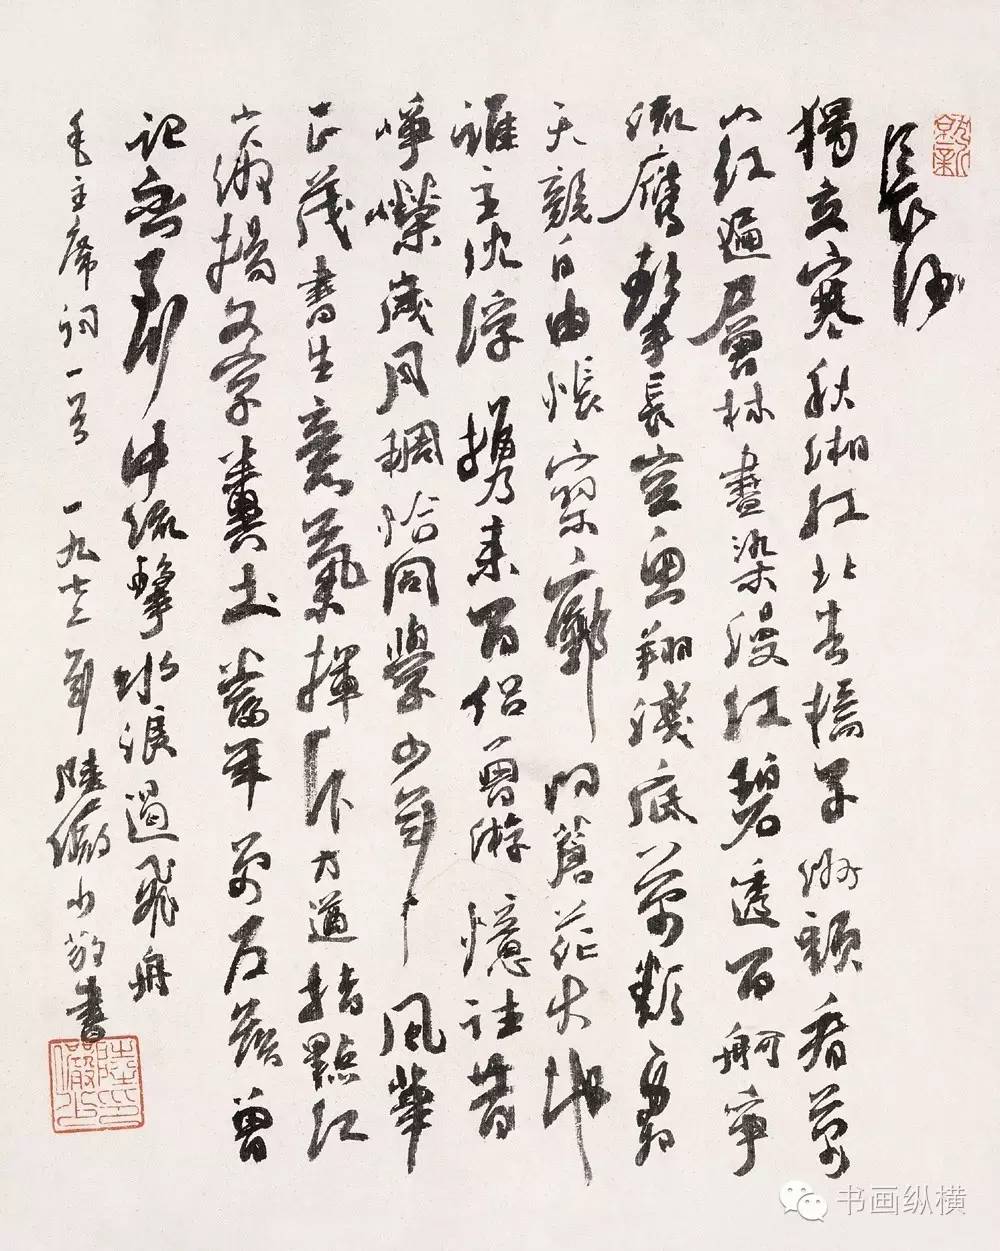 長沙
獨立寒秋湘江北去橘子洲頭看萬
山紅遍層林盡染漫江碧透百舸爭
流鷹擊長空魚翔淺底萬類霜
天競自由悵寥廓問蒼茫大地
誰主沈浮攜來百侶曾游憶往昔
崢嶸歲月稠恰同學少年風華
正茂書生意氣揮斥方遒指點江
山激揚文字糞土當年萬戶侯曾
記否到中流擊水浪遏飛舟
毛主席詞一首 一九七三年 陸儼少敬書
就新
陸儼少印
书画纵横